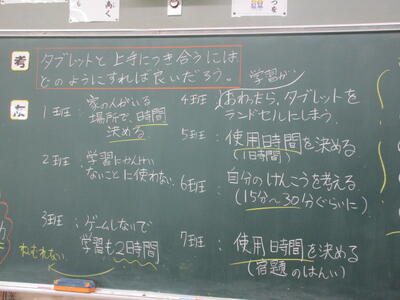 考
タブレットと上手につき合うには
どのようにすれば良いだろう。
1班：家の人がいる
場所で、時間
決める
2班：学習にかんけい
ないことに使わない。
3班：ゲームしないで
学習も2時間
ねむれない
学習が
4班：おわったら、タブレットを
ランドセルにしまう。
5班：使用時間を決める
(1日時間)
6班：自分のけんこうを考える
(15分〜30分ぐらいに)
7班：使用時間を決める
(宿題のはんい)